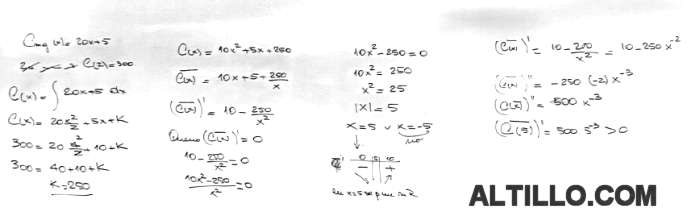 Cmg (x) = 20x+5
C(2)=300
C(x) = ∫ 20x+5 dx
C(x) = 20x²/2 + 5x + K
300 = 20 2²/2 + 10 + K
300 = 40 + 10 + K
K = 250
C(x) = 10x² + 5x + 250
C̅(x) = 10x + 5 + 250/x
(C̅(x))' = 10 - 250/x²
(C̅(x))' = 0
10 - 250/x² = 0
10x² - 250/x² = 0
10x² - 250 = 0
10x² = 250
x² = 25
|x| = 5
x = 5 ∨ x = -5
no
0 5 10
- +
(C̅(x))' = 10 - 250/x² = 10 - 250 x⁻²
(C̅(x))'' = -250 (-2) x⁻³
(C̅(x))'' = 500 x⁻³
(C̅(5))'' = 500 5⁻³ > 0
ALTILLO.COM